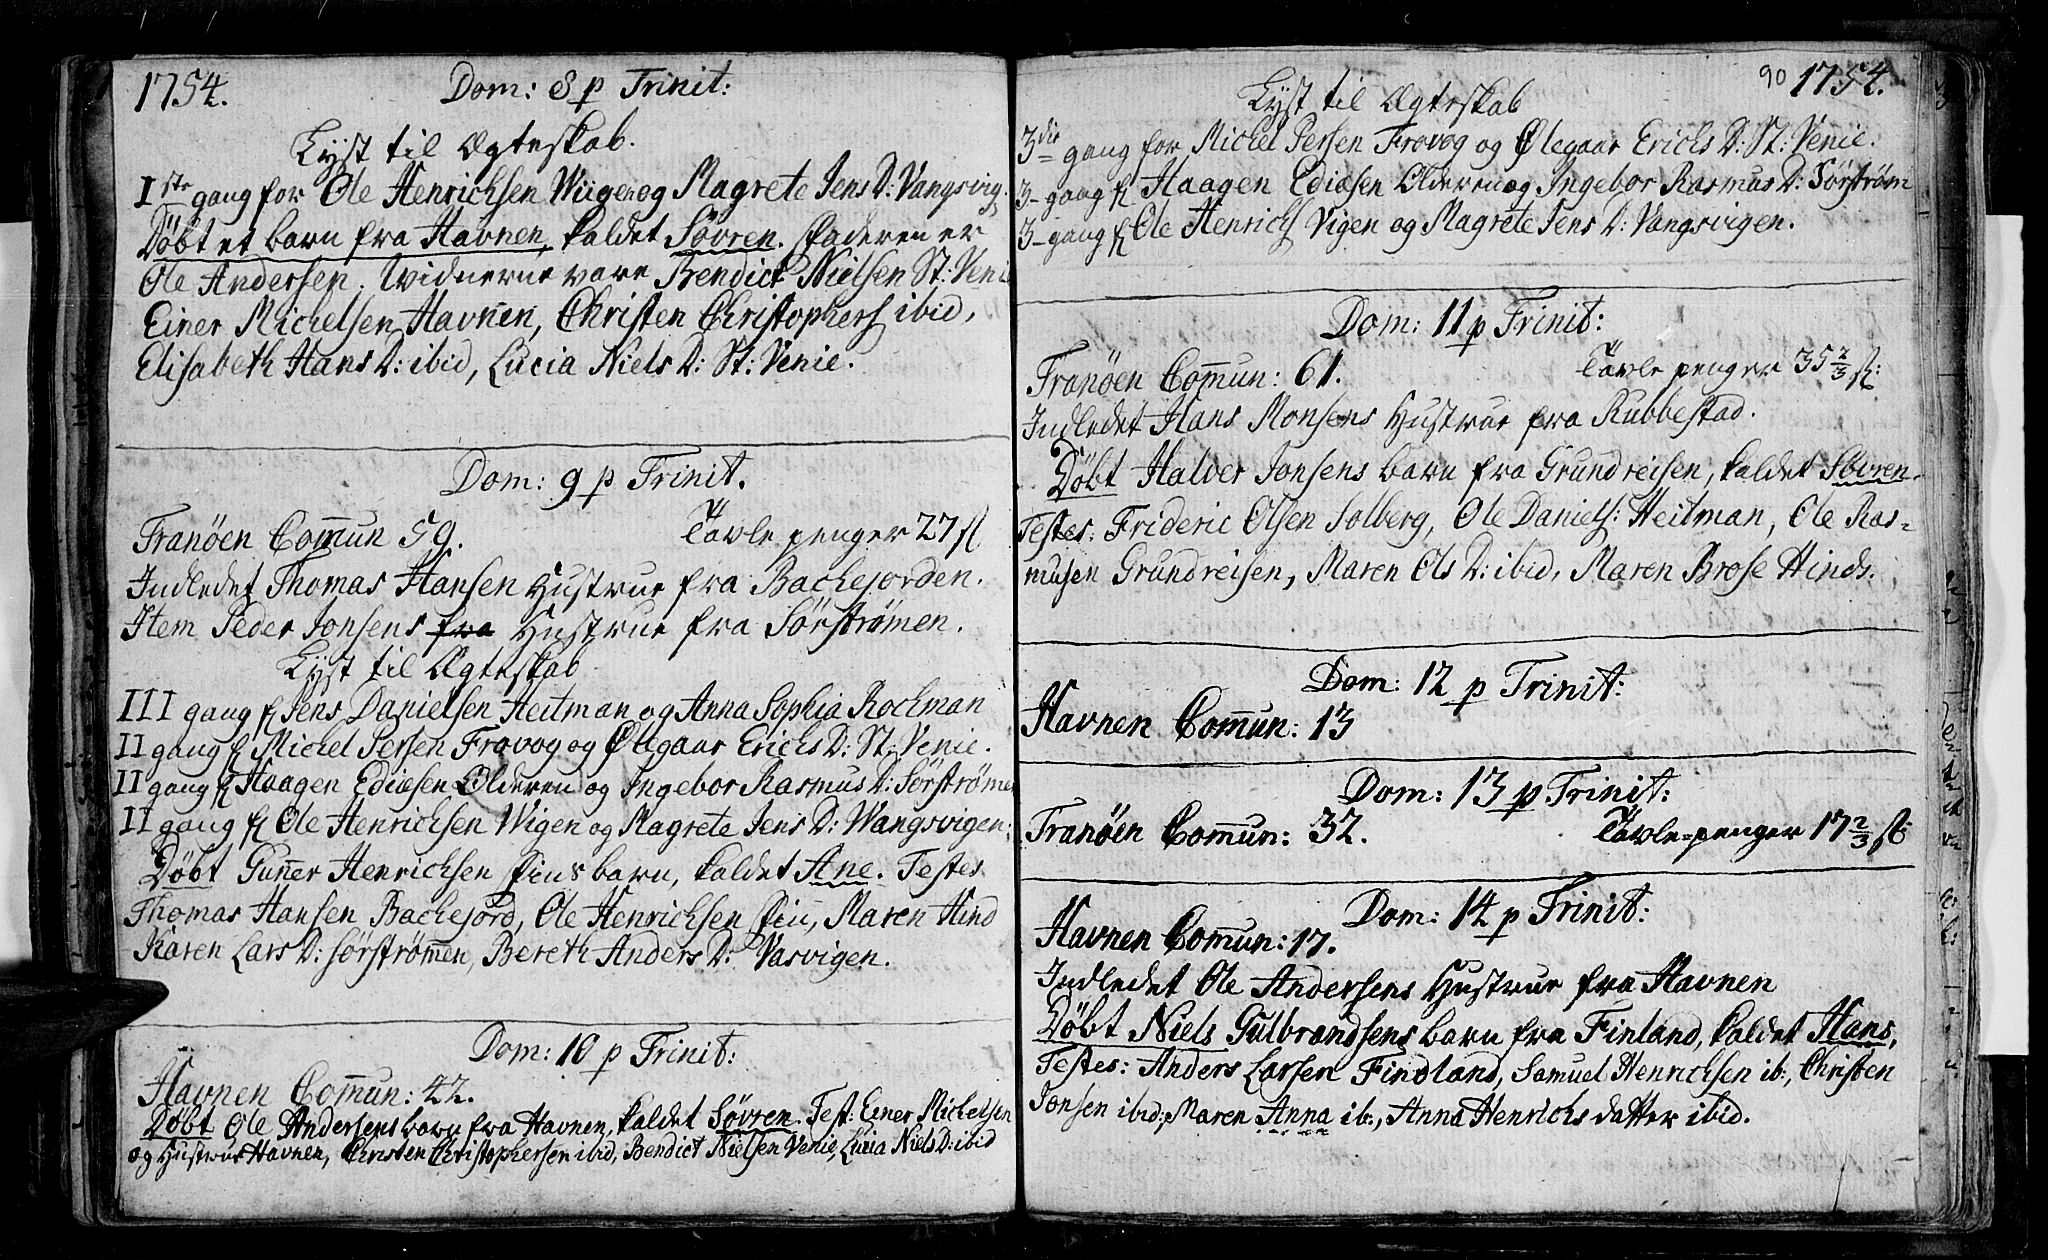 1754.
Dom: 8 p Trinit:
Lyst til Ægteskab.
I ste gang for Ole Henrichsen Wiigen og Magrete Jens D: Vangsvig.
Døbt et barn fra Havnen, kaldet Søvren. Faderen er
Ole Andersen. Widnerne vare Bendict Nielsen St: Venie
Einer Michelsen Havnen, Christen Christophers ibid,
Elisabeth Hans D: ibid, Lucia Niels D: St: Venie.
Dom: 9 p Trinit.
Tranöen Com̅un 59. Tavle penger 27 ſl
Indledet Thomas Hansen Hustrue fra Bachejorden.
Item Peder Jonsens fra Hustrue fra Sörströmen.
Lyst til Ægteskab
III gang f Jens Danielsen Heitman og Anna Sophia Rochman
II gang f Michel Persen Frovog og Ølegaar Erichs D: St: Venie.
II gang f Haagen Ediæsen Olderen og Ingebor Rasmus D: Sörströmen
II gang f Ole Henrichsen Wigen og Magrete Jens D: Wangsvigen:
Døbt Gun̅er Henrichsen Fins barn, kaldet Ane. Testes
Thomas Hansen Bachejord, Ole Henrichsen Fin̅, Maren Hind
Karen Lars D: Sörström̅en, Bereth Anders D: Vasvigen.
Dom: 10 p Trinit:
Havnen Com̅un: 42.
Døbt Ole Andersens barn fra Havnen, kaldet Søvren. Test: Einer Michelsen
og Hustrue Havnen, Christen Christophersen ibid, Bendict Nielsen Venie, Lucia Niels D: ibid
90 1754.
Lyst til Ægteskab
3die gang for Michel Persen Frovog og Ølegaar Erichs D: St: Venie.
3- gang f Haagen Ediæsen Olderen og Ingebor Rasmus D: Sörström
3- gang f Ole Henrichs Vigen og Magrete Jens D: Vangsvigen.
Dom: 11 p Trinit:
Tranöen Com̅un: 61. Tavle penger 35 2/3 ſl:
Indledet Hans Monsens Hustrue fra Rubbestad.
Døbt Halver Jonsens barn fra Grundreisen, kaldet Søvren.
Testes: Frideric Olsen Solberg, Ole Daniels: Heitman, Ole Ras=
musen Grundreisen, Maren Ols D: ibid, Maren Brose Hinds.
Dom: 12 p Trinit:
Havnen Com̅un: 13
Dom: 13 p Trinit:
Tranöen Com̅un: 32. Tavle=penger 17 2/3 ſl:
Dom: 14 p Trinit:
Havnen Com̅un: 17.
Indledet Ole Andersens Hustrue fra Havnen
Døbt Niels Gulbrandsens barn fra Finland, kaldet Hans,
Testes: Anders Larsen Findland, Samuel Henrichsen ib:, Christen
Jonsen ibid: Maren Anna ib:, Anna Henrichs datter ibid.